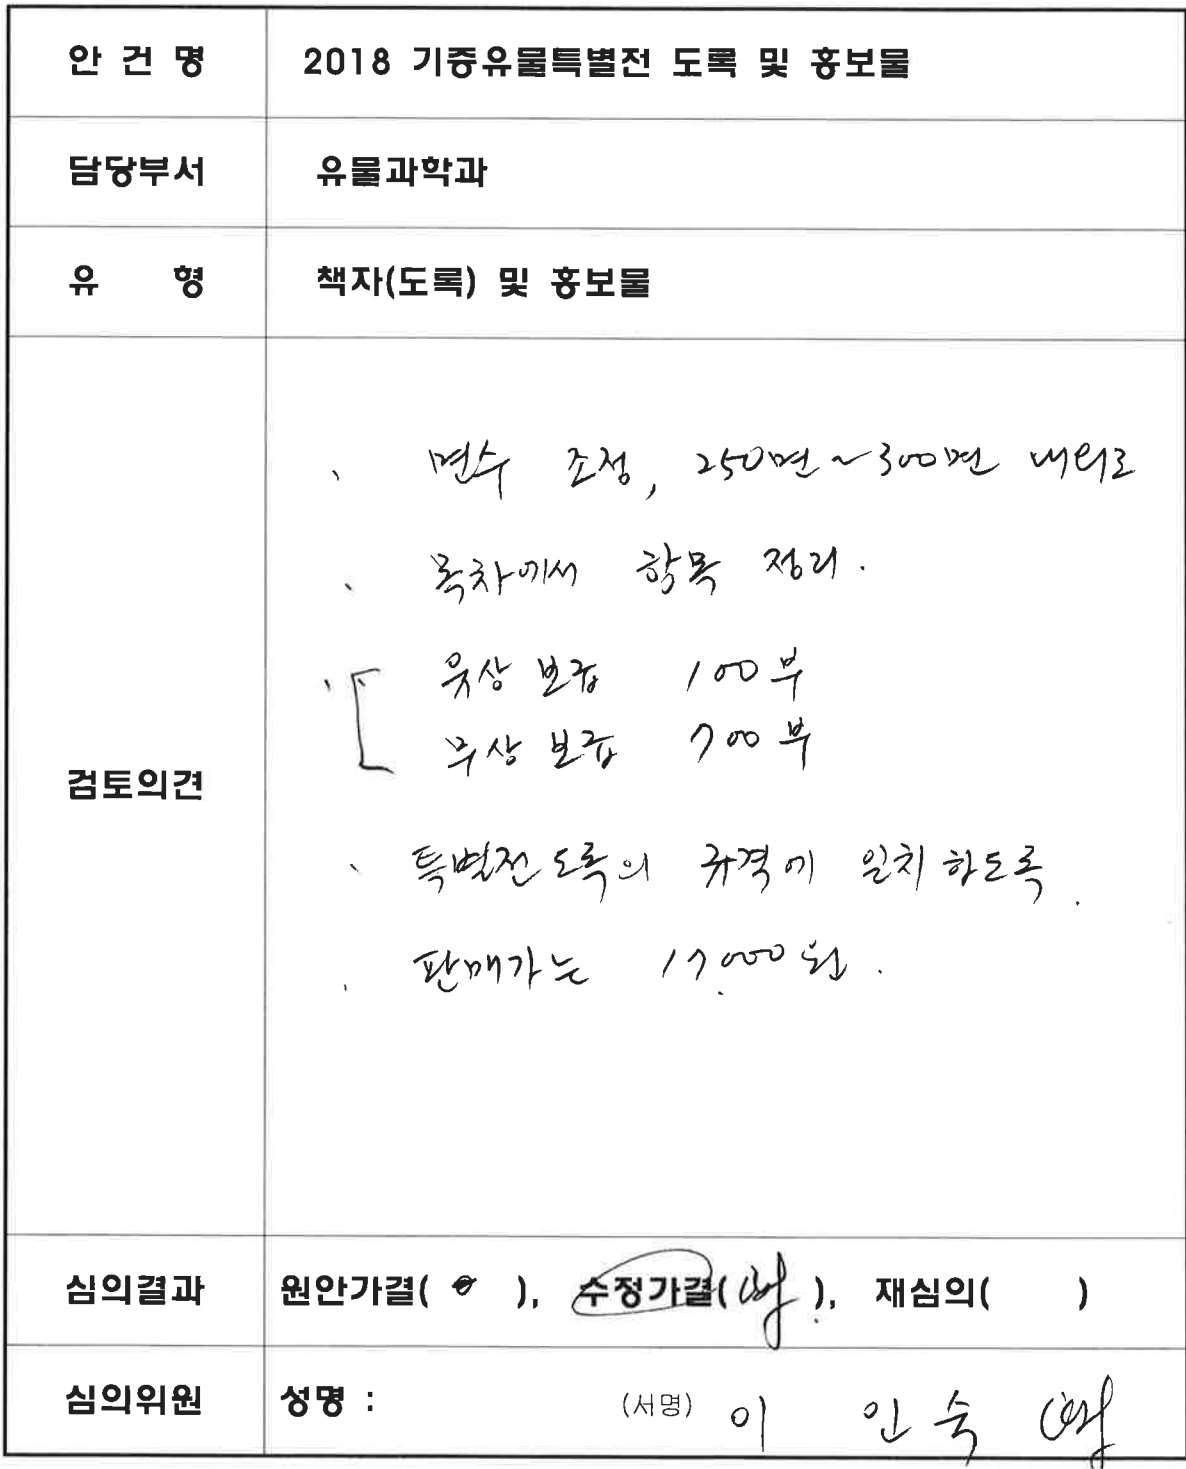 안 건 명 2018 기증유물특별전 도록 및 홍보물
담당부서 유물과학과
유 형 책자(도록) 및 홍보물
검토의견
면수 조정, 250면~300면 내외로
목차에서 항목 정리.
유상 보급 100부
무상 보급 700부
특별전 도록의 규격에 일치하도록.
판매가는 17,000원.
심의결과 원안가결( ), 수정가결( ), 재심의( )
심의위원 성명 : (서명) 이 인 숙